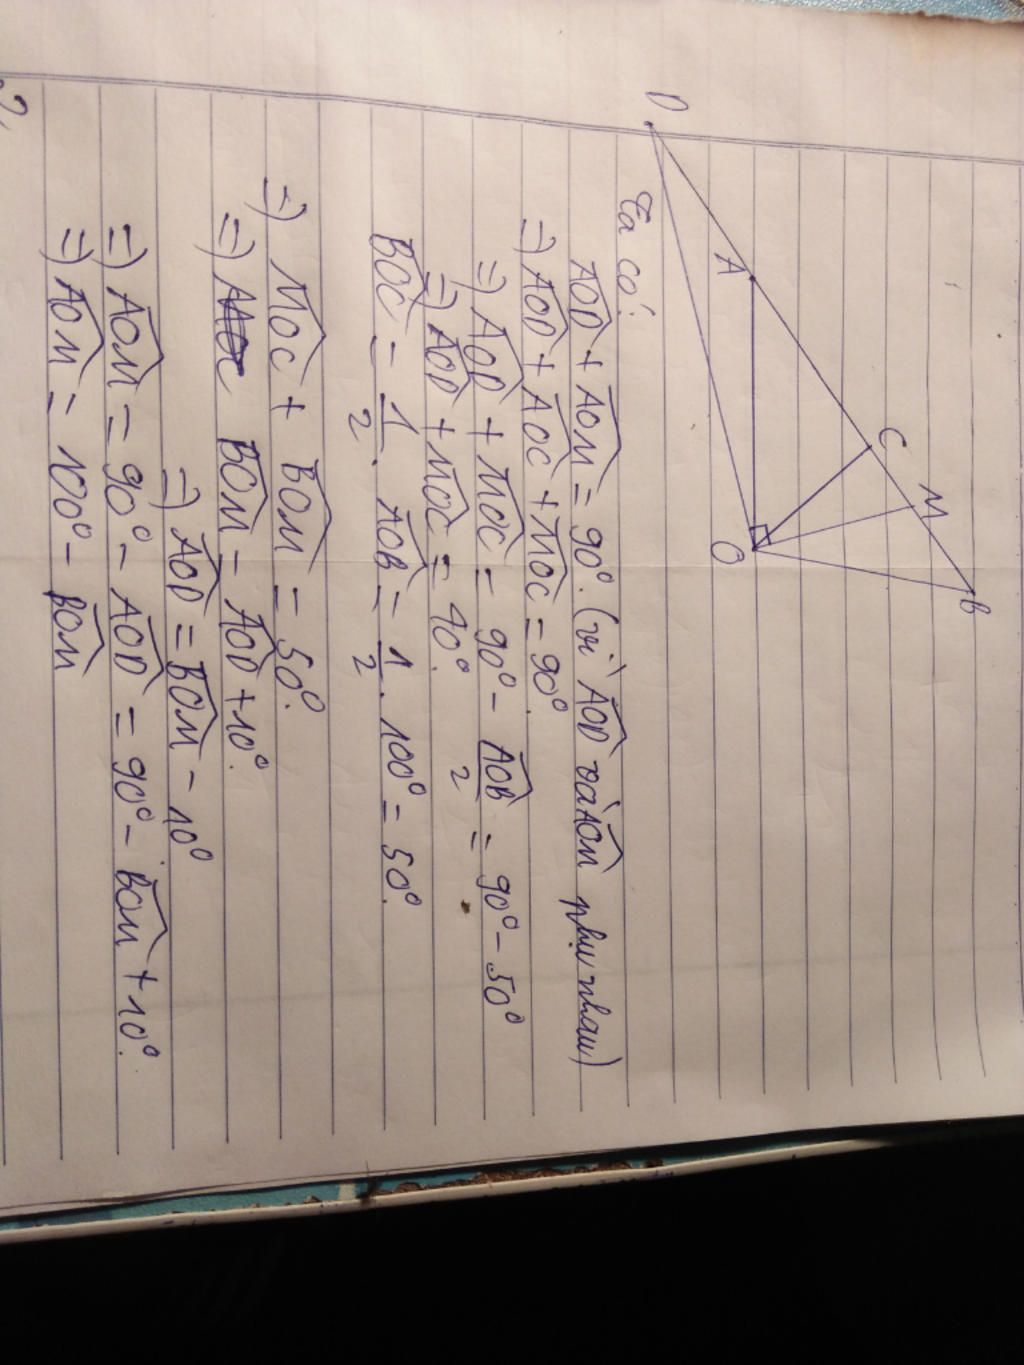 D
A
C
M
B
O
Ta có:
AOD + AOM = 90°. (vì AOD và AOM phụ nhau)
=) AOD + AOC + MOC = 90°
=) AOD + MOC = 90° - AOB/2 = 90° - 50°
=) AOD + MOC = 40°.
BOC = 1/2 . AOB = 1/2 . 100° = 50°.
=) MOC + BOM = 50°.
=) BOM = AOD + 10°.
=) AOD = BOM - 10°
=) AOM = 90° - AOD = 90° - BOM + 10°.
=) AOM = 100° - BOM
2,